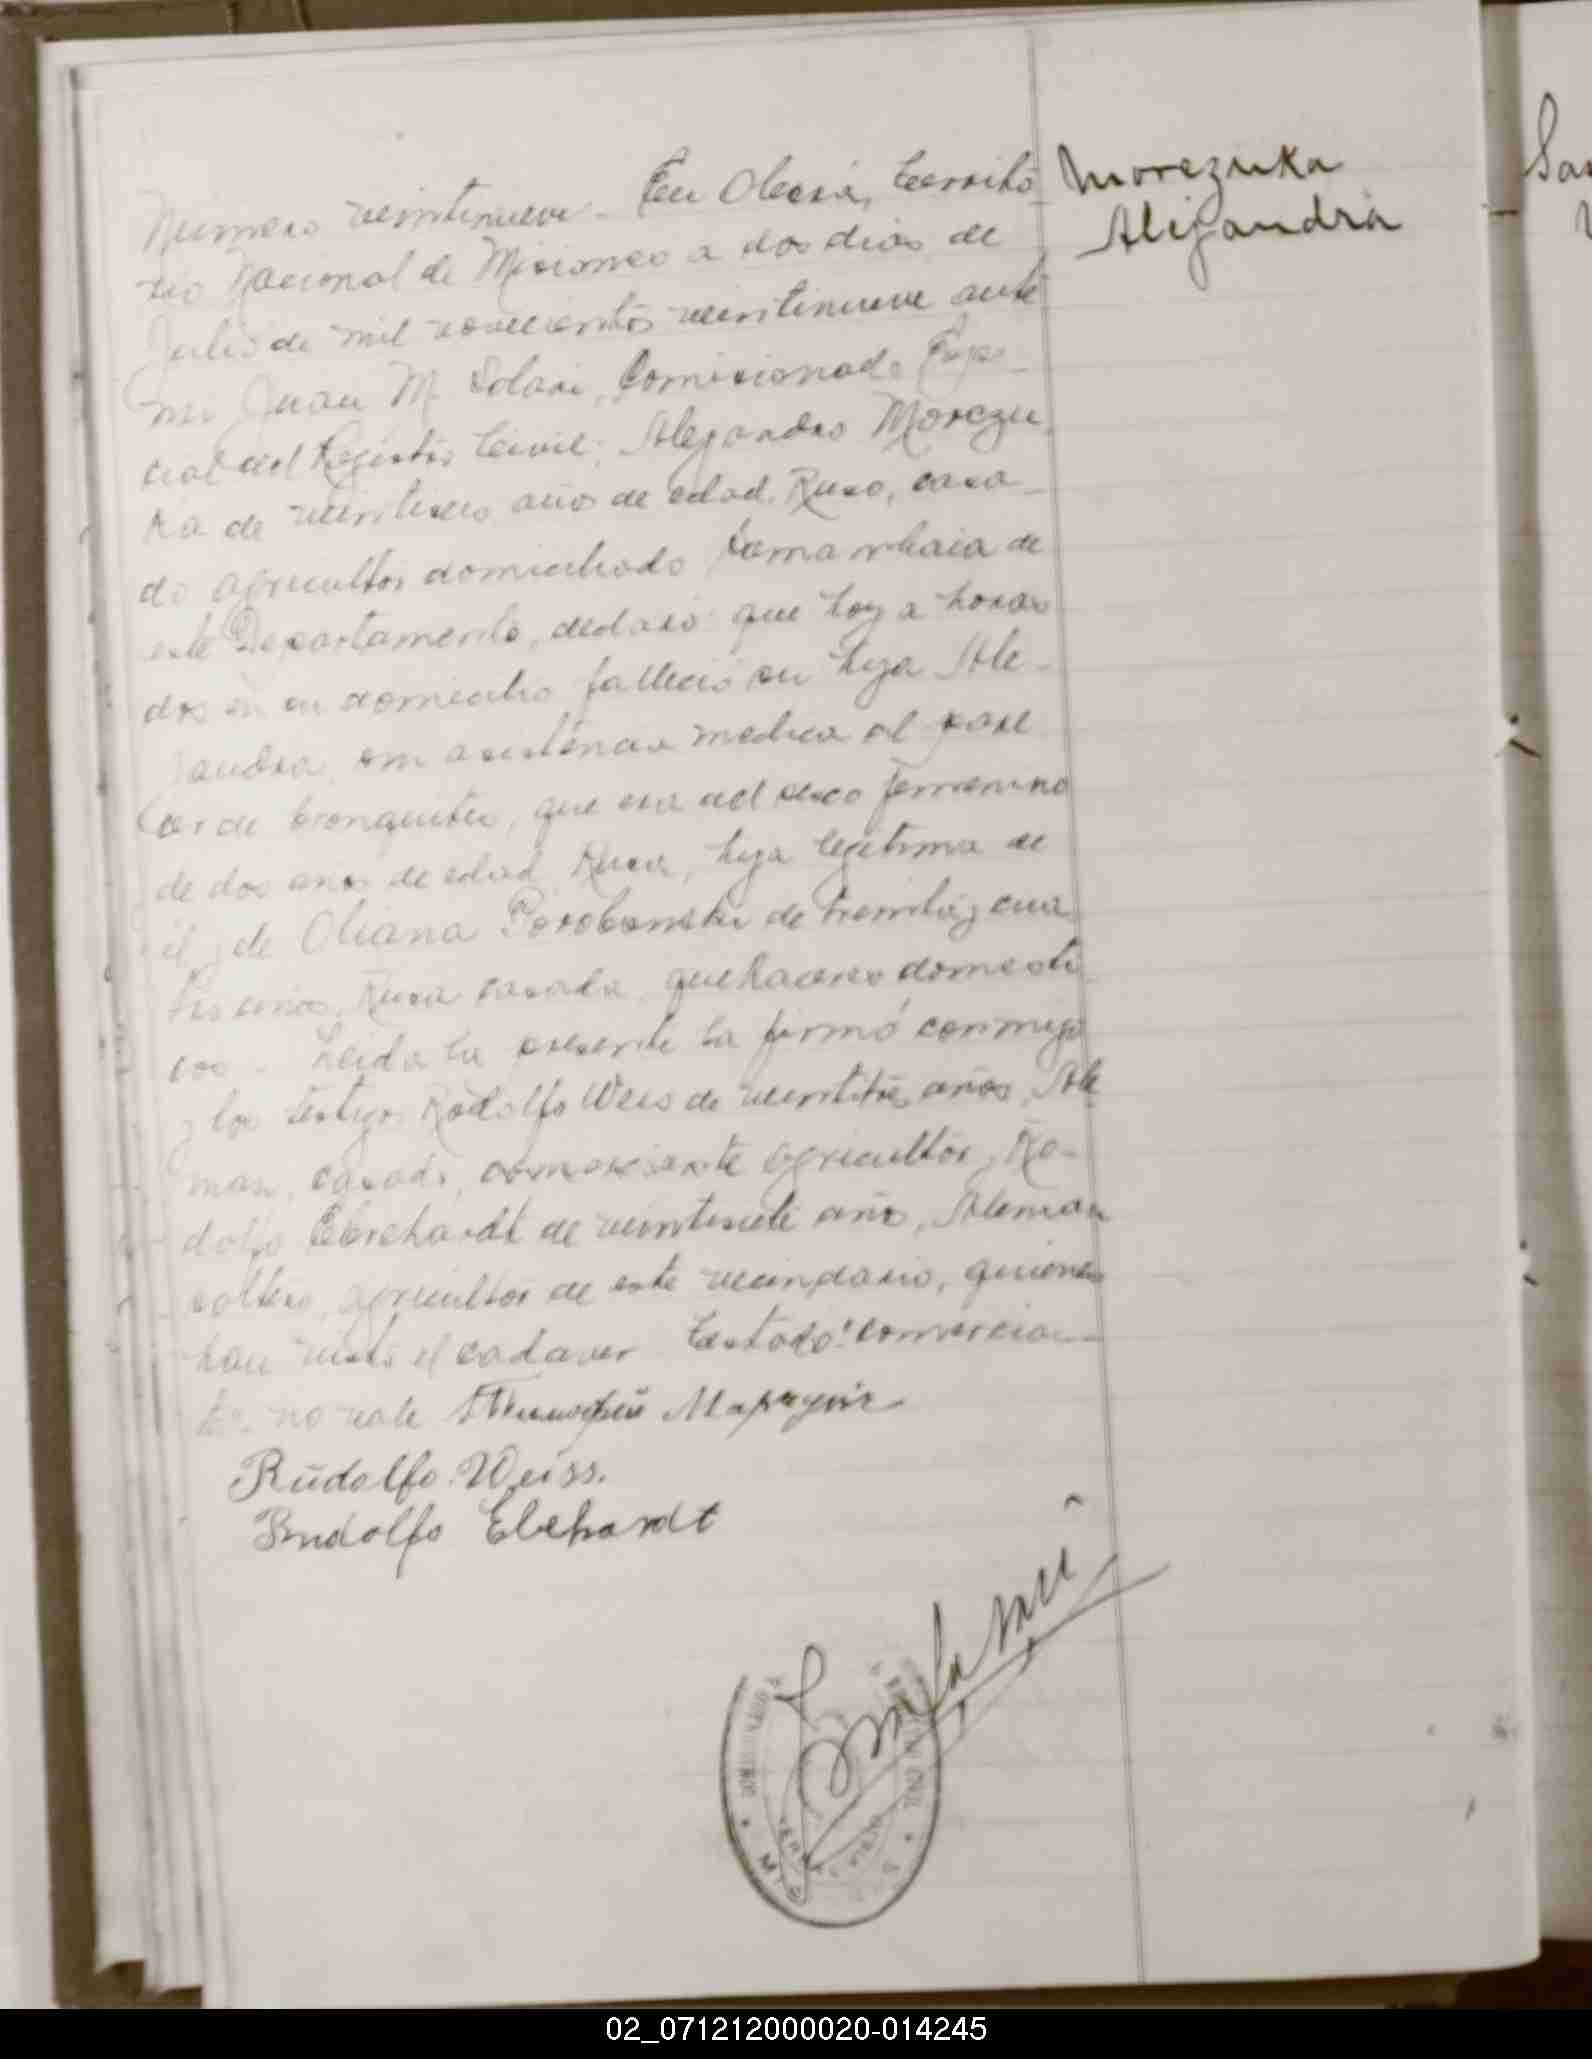 Morezuka
Alejandra
Numero veintinueve. En Oberá, Territo-
rio Nacional de Misiones a dos dias de
Julio de mil novecientos veintinueve ante
mi Juan M. Solari, Comisionado Espe-
cial del Registro Civil; Alejandro Morezu
ka de años de edad, Ruso, casa-
do agricultor domiciliado de
este Departamento, declaró que hoy a horas
dos en su domicilio falleció su hija Ale-
jandra sin asistencia medica al pare
cer de bronquitis, que era del sexo femenino
de dos años de edad, Rusa, hija legitima de
él y de Oliana de treinta y cua
tro años, Rusa casada, quehaceres domesti
cos. Leida la presente la firmó conmigo
y los testigos Rodolfo Weis de años, Ale
man, casado, comerciante agricultor y Ro-
dolfo Ebrehardt de veintisiete años, Aleman
soltero, agricultor de este vecindario, quienes
han visto el cadaver. Testado: comercian-
te: no vale
Rudolfo Weiss.
Rudolfo Ebehardt
02_071212000020-014245